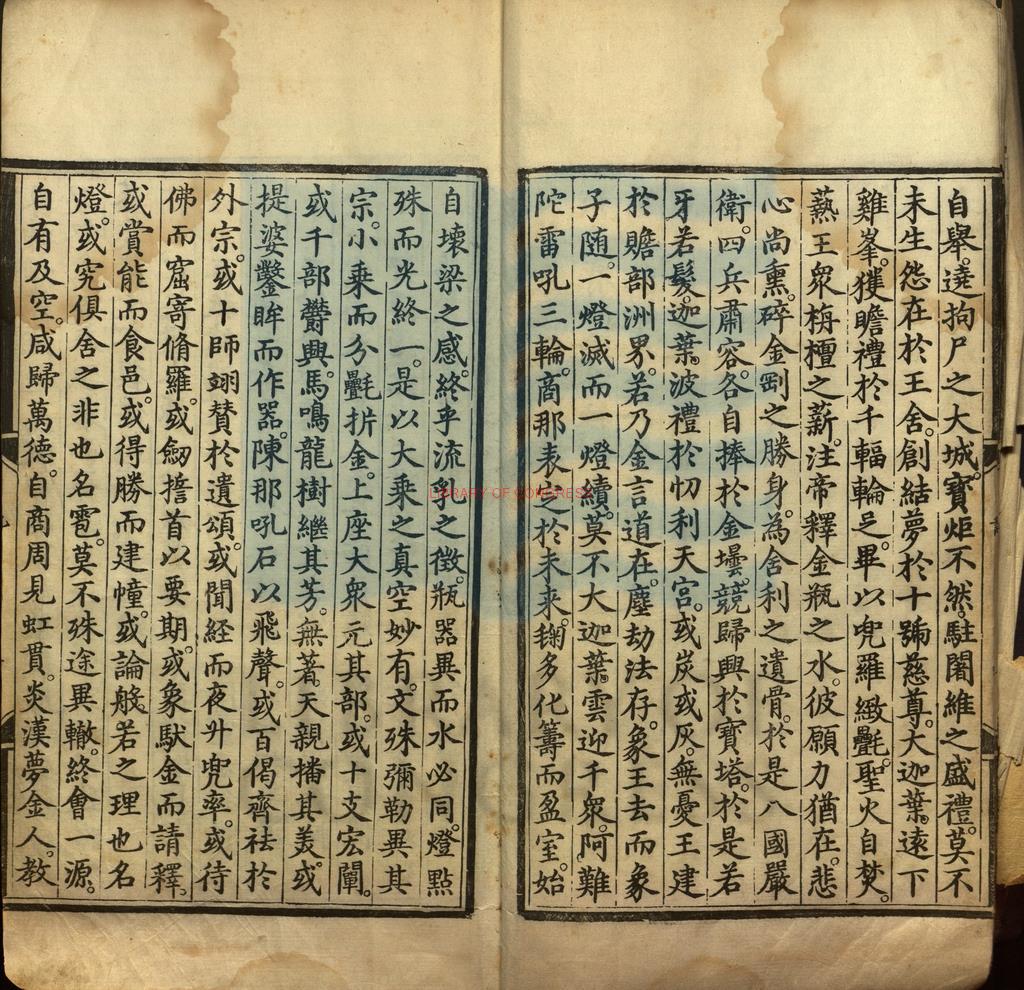 自舉遶拘尸之大城寶炬不然駐闍維之盛禮莫不
未生怨在於王舍創結夢於十號慈尊大迦葉遠下
雞峯獲瞻禮於千輻輪足畢以兜羅緻㲲聖火自焚
爇王眾栴檀之薪注帝釋金瓶之水彼願力猶在悲
心尚熏碎金剛之勝身為舍利之遺骨於是八國嚴
衛四兵肅容各自捧於金壜競歸興於寶塔於是若
牙若髮迦葉波禮於忉利天宮或炭或灰無憂王建
於贍部洲界若乃金言道在塵劫法存象王去而象
子随一燈滅而一燈續莫不大迦葉雲迎千衆阿難
陀雷吼三輪商那表定於未来鞠多化籌而盈室始
自壞梁之感終乎流乳之徵瓶器異而水必同燈點
殊而光終一是以大乘之真空妙有文殊彌勒異其
宗小乘而分㲲折金上座大眾元其部或十支宏闡
或千部欝興馬鳴龍樹繼其芳無著天親播其美或
提婆鑿眸而作器陳那吼石以飛聲或百偈齊祛於
外宗或十師翊賛於遺頌或聞經而夜升兜率或待
佛而窟寄脩羅或劒擔首以要期或象馱金而請釋
或賞能而食邑或得勝而建幢或論般若之理也名
燈或究俱舍之非也名雹莫不殊途異轍終會一源
自有及空咸歸萬德自商周見虹貫炎漢夢金人教
LIBRARY OF CONGRESS